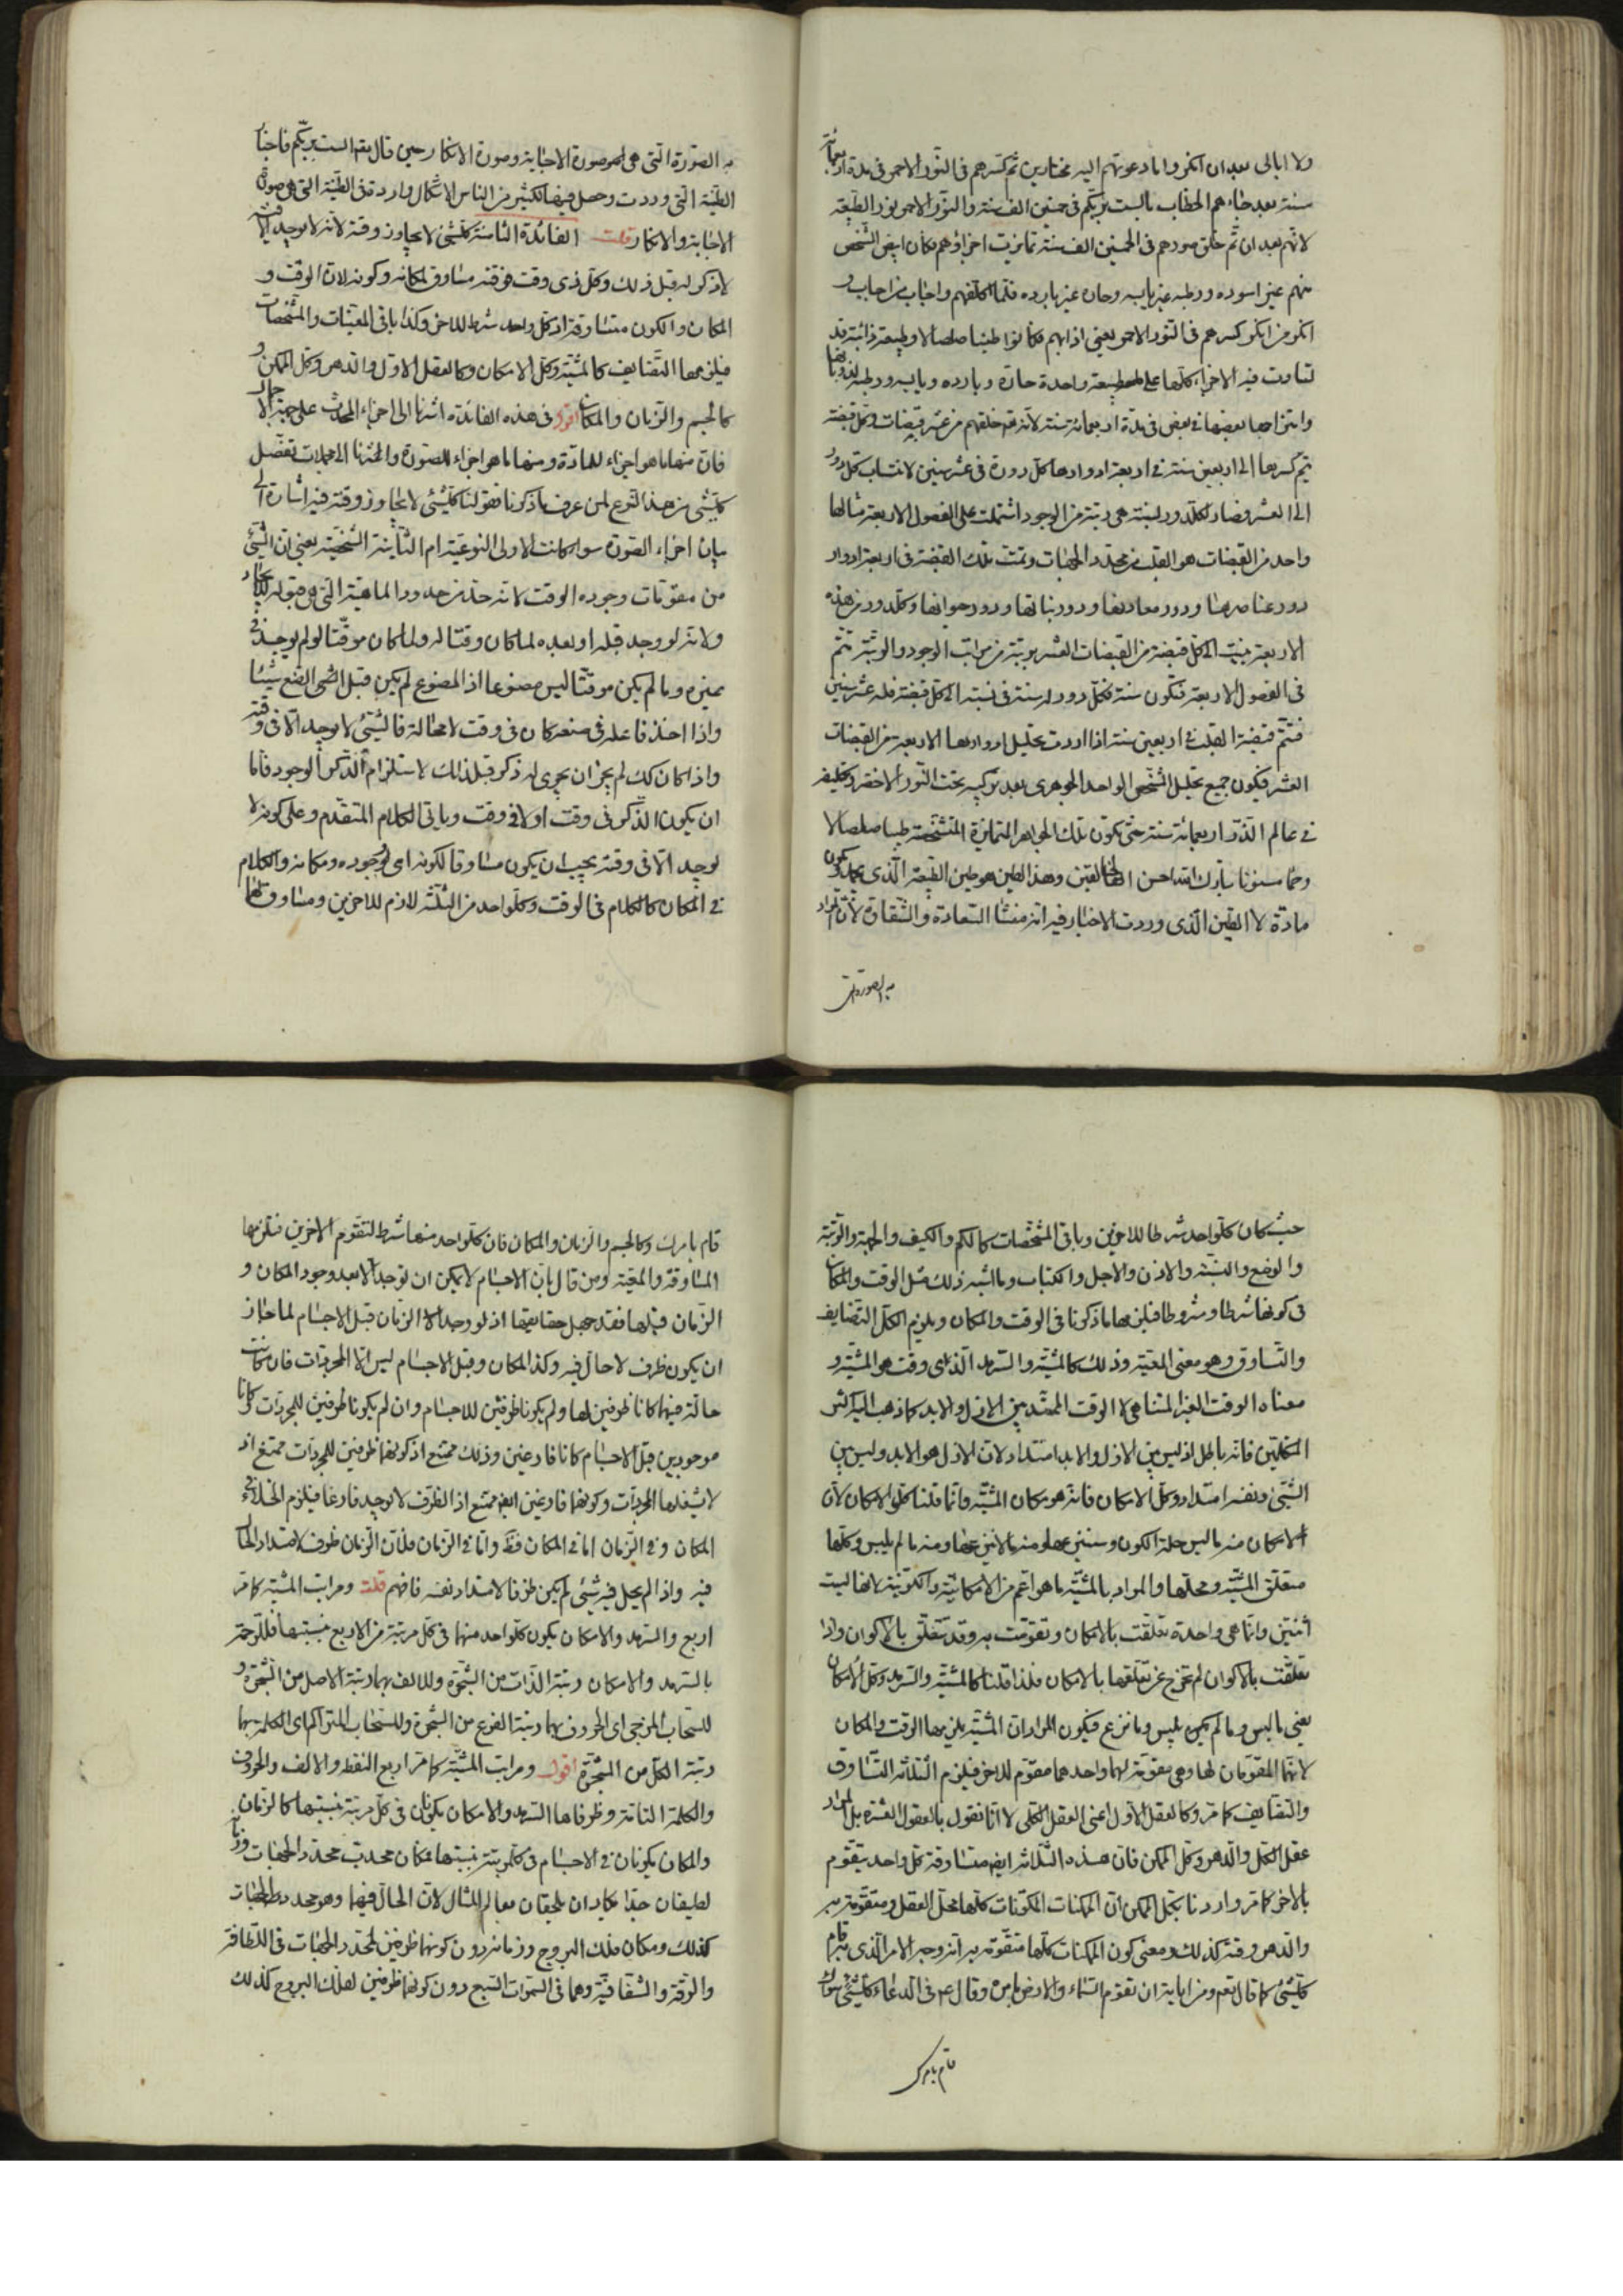 ولا ابالى بعد ان انكروا ما دعوتهم اليه مختارين ثم كسرهم فى النور الاحمر فى مدة اربعمائة
سنة بعد خطابهم الخطاب بالست بربكم فى خمسين الف سنة والنور الاحمر نور الطبيعة
لانهم بعد ان تم خلق صورهم فى الخمسين الف سنة تمايزت اجزاؤهم فكان ابيض الشخص
منهم غير اسوده ورطبه غير يابسه وحاره غير بارده فلما كلفهم واجاب من اجاب و
انكر من انكر كسرهم فى النور الاحمر يعنى اذابهم فكانوا طينا صلصالا وطبيعة ذائبة قد
تساوت فيه الاجزاء كلها على طبيعة واحدة حارة وبارده ويابسه ورطبه لذوبانها
وامتزاجها بعضها فى بعض فى مدة اربعمائة سنة لانه تعالى خلقهم من عشر قبضات وكل قبضة
يتم كسرها الى اربعين سنة فى اربعة ادوارها كل دورة فى عشر سنين لانتساب كل دور
الى العشر وصار لكل دور نسبة هى رتبة من الوجود اشتملت على الفصول الاربعة مثالها
واحد من القبضات هو القلب من محدد الجهات وتمت تلك القبضة فى اربعة ادوار
دور عناصرها ودور معادنها ودور نباتها ودور حيوانها وكل دور من هذه
الاربعة نسبت الى كل قبضة من القبضات العشر برتبة من مراتب الوجود والرتبة تتم
فى الفصول الاربعة فتكون سنة فكل دور له سنة فى نسبته الى كل قبضة فله عشر سنين
فتتم قبضة القلب فى اربعين سنة اذا اردت تحليل ادوارها الاربعة من القبضات
العشر فيكون جميع تحليل الشخص الواحد الجوهرى بعد تركيبه تحت النور الاخضر وتكليفه
فى عالم الذر اربعمائة سنة حتى تكون تلك الجواهر المتمايزة المتشخصة طينا صلصالا
وحمأ مسنونا تبارك الله احسن الخالقين وهذا الطين هو طين الطبيعة الذى يعمل ويكون
مادة لا الطين الذى وردت الاخبار فيه انه منشأ السعادة والشقاوة لان المراد
به الصورة التى
به الصورة التى هى لهم صورة الاجابة وصورة الانكار حين قال لهم الست بربكم فاجتا
الطينة التى وردت وحصل فيها لكثير من الناس الاشكال واردة فى الطينة التى هى صورة
الاجابة والانكار قلت الفائدة الثامنة كل شئ لا يجاوز وقته لانه لا يوجد الا فيه
لا ذكر له قبل ذلك وكل ذى وقت فوقته مساوق لمكانه وكونه لان الوقت و
المكان والكون متساوقة اذ كل واحد شرط للاخر وكذا باقى المعينات والمشخصات
فيلزمها التضايف كالمشية وكل الامكان وكالعقل الاول والدهر وكل الممكن و
كالجسم والزمان والمكان اقول فى هذه الفائدة اشرنا الى اجزاء المحدث على جهة الاجمال
فان منها ما هو اجزاء للمادة ومنها ما هو اجزاء للصورة واشرنا الى مجملات تفصل
كل شئ من هذا النوع لمن عرف ما ذكرنا فقولنا كل شئ لا يجاوز وقته فيه اشارة الى
بيان اجزاء الصورة سواء كانت الاولى النوعية ام الثانية الشخصية يعنى ان الشئ
من مقومات وجوده الوقت لانه حد من حدود الماهية التى هى قبوله للايجاد
ولانه لو وجد قبله او بعده لما كان وقتا له ولما كان موقتا لو لم يوجد فى
غيره وما لم يكن موقتا ليس مصنوعا اذ المصنوع لم يكن قبل الصنع شيئا
واذا اخذ فاعله فى صنعه كان فى وقت لا محالة فالشئ لا يوجد الا فى وقته
واذا كان كك لم يجز ان يجرى له ذكر قبل ذلك لاستلزام الذكر الوجود فاما
ان يكون الذكر فى وقت او لا فى وقت وياتى الكلام المتقدم وعلى كونه لا
يوجد الا فى وقته يجب ان يكون مساوقا لكونه اى وجوده ومكانه والكلام
فى المكان كالكلام فى الوقت وكل واحد من الثلثة لازم للاخرين ومساوق لها
حيث كان كل واحد شرطا للاخرين وباقى المشخصات كالكم والكيف والجهة والرتبة
والوضع والنسبة والاذن والاجل والكتاب وما اشبه ذلك مثل الوقت والمكان
فى كونها شرطا ومشروطا فيلزمها ما ذكرنا فى الوقت والمكان ويلزم الكل التضايف
والتساوق وهو معنى المعية وذلك كالمشية والسرمد الذى وقت هو المشية و
معناه الوقت الغير المتناهى لا الوقت الممتد بين الازل والابد كما ذهب اليه اكثر
المتكلمين فانه باطل اذ ليس بين الازل والابد امتداد لان الازل هو الابد وليس بين
الشئ ونفسه امتداد وكل الامكان فانه هو مكان المشية وانما قلنا كل الامكان لان
الامكان منه ما لبس حلة الكون وسنين عها ومنه ما لانين عها ومنه ما لم يلبس وكلها
متعلق المشية ومحلها والمراد بالمشية ما هو اعم من الامكانية والكونية لانها ليست
اثنتين وانما هى واحدة تعلقت بالامكان وتقومت به وقد تتعلق بالاكوان واذا
تعلقت بالاكوان لم تخرج عن تعلقها بالامكان فلذا قلنا كالمشية والسرمد وكل الامكان
يعنى ما لبس وما لم يكن يلبس وما نزع فيكون المراد ان المشية يلزمها الوقت والمكان
لانهما المقومان لها وهى مقومة لهما واحدهما مقوم للاخر فيلزم الثلثة التساوق
والتضايف كما مر وكالعقل الاول اعنى العقل الكلى لا انا نقول بالعقول العشرة بل المراد
عقل الكل والدهر وكل الممكن فان هذه الثلاثة ايضا متساوقة كل واحد يتقوم
بالاخر كما مر واردنا بكل الممكن ان الممكنات المكونات كلها محل العقل ومتقومة به
والدهر وقته كذلك ومعنى كون الممكنات كلها متقومة به انه وجه الامر الذى به قام
كل شئ كما قال تعم ومن اياته ان تقوم السماء والارض بامره وقال ع فى الدعاء كل شئ سواك
قام بامرك
قام بامرك وكالجسم والزمان والمكان فان كل واحد منها شرط لتقوم الاخرين فتلزمها
المساوقة والمعية ومن قال بان الاجسام لا يمكن ان توجد الا بعد وجود المكان و
الزمان قبلها فقد جهل حقايقها اذ لو وجد الزمان قبل الاجسام لما جاز
ان يكون ظرف لا حال فيه وكذا المكان وقبل الاجسام ليس الا المجردات فان كانت
حالة فيهما كانا ظرفين لها ولم يكونا ظرفين للاجسام وان لم يكونا ظرفين للمجردات وكانا
موجودين قبل الاجسام كانا فارغين وذلك ممتنع اذ كونهما ظرفين للمجردات ممتنع اذ
لا يشغلها المجردات وكونهما فارغين ايضا ممتنع اذ الظرف لا يوجد فارغا فيلزم الخلاء فى
المكان وفى الزمان اما فى المكان فظ واما فى الزمان فلان الزمان ظرف لامتداد الحال
فيه واذا لم يحل فيه شئ لم يكن ظرفا لامتداد نفسه فافهم قلت ومراتب المشية كما مر
اربع والسرمد والامكان يكون كل واحد منهما فى كل مرتبة من الاربع بنسبتها فللرحمة
بالسرمد والامكان رتبة الذات من الشجرة وللالف بهما رتبة الاصل من الشجرة و
للسحاب المزجى اى الحروف بهما رتبة الفرع من الشجرة وللسحاب المتراكم اى الكلمة بهما
رتبة الكل من الشجرة اقول ومراتب المشية كما مر اربع النقطة والالف والحروف
والكلمة التامة وظرفاها السرمد والامكان يكونان فى كل مرتبة بنسبتها كالزمان
والمكان يكونان فى الاجسام فى كل رتبة بنسبتها فمكان محدب محدد الجهات وزمانه
لطيفان جدا يكادان يلحقان بعالم المثال لان الحال فيهما وهو محدد الجهات
كذلك ومكان فلك البروج وزمانه دون كونهما ظرفين لمحدد الجهات فى اللطافة
والرقة والشفافية وهما فى السموات السبع دون كونهما ظرفين لفلك البروج كذلك